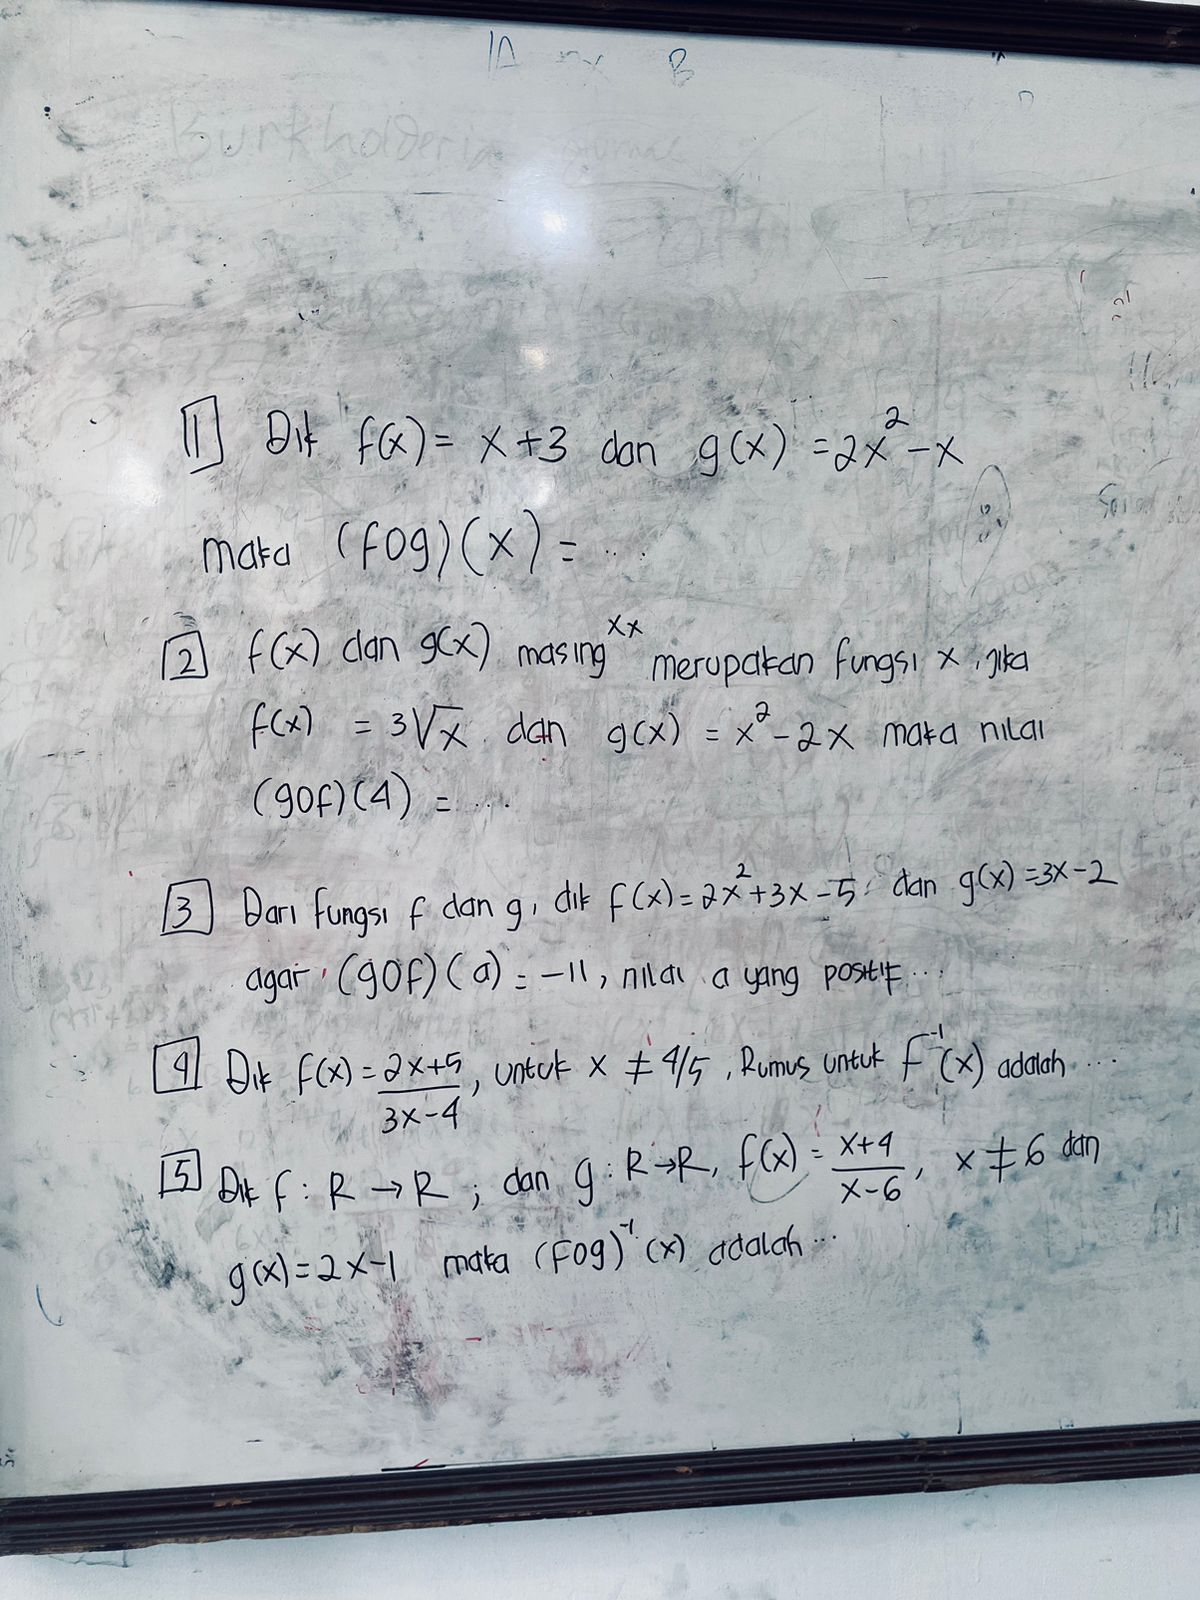 Burkholderia
1 Dik f(x) = x + 3 dan g(x) = 2x² - x
maka (fog)(x) = ...
2 f(x) dan g(x) masing xx merupakan fungsi x, jika
f(x) = 3√x dan g(x) = x² - 2x maka nilai
(gof)(4) = ...
3 Dari fungsi f dan g, dik f(x) = 2x² + 3x - 5 dan g(x) = 3x - 2
agar (gof)(a) = -11, nilai a yang positif...
4 Dik f(x) = (2x+5)/(3x-4), untuk x ≠ 4/5, Rumus untuk f⁻¹(x) adalah ...
5 Dik f : R → R ; dan g : R → R, f(x) = (x+4)/(x-6), x ≠ 6 dan
g(x) = 2x - 1 maka (fog)⁻¹(x) adalah ...